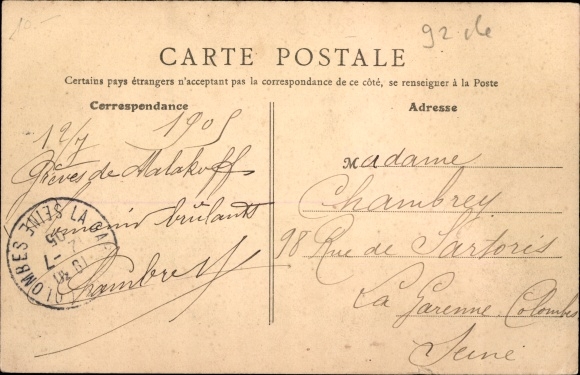 10.-
92 cle
CARTE POSTALE
Certains pays étrangers n'acceptant pas la correspondance de ce côté, se renseigner à la Poste
Correspondance
Adresse
12/7 1905
Grèves de Malakoff
brulants
Chambrey
Madame
Chambrey
98 Rue de Sartores
La Garenne Colombes
Seine
LA GA
COLOMBES SEINE